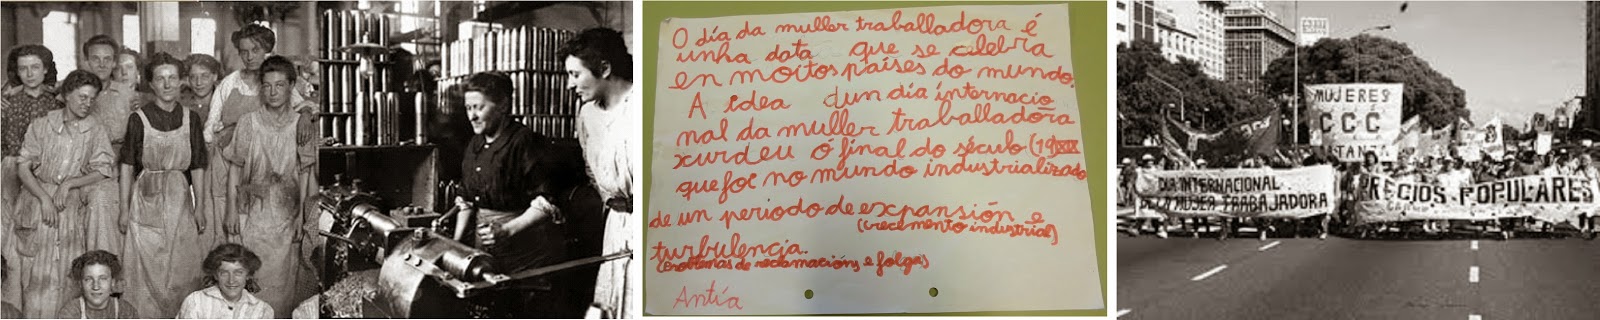 O día da muller traballadora é
unha data que se celebra
en moitos países do mundo.
A idea dun día internacio
nal da muller traballadora
xurdeu ó final do século (19) XIX
que foi no mundo industrializado
de un periodo de expansión e
(crecemento industrial)
turbulencia.
(problemas de reclamacións e folgas)
Antía
MUJERES
CCC
MATANZA
DIA INTERNACIONAL
DE LA MUJER TRABAJADORA
PRECIOS POPULARES